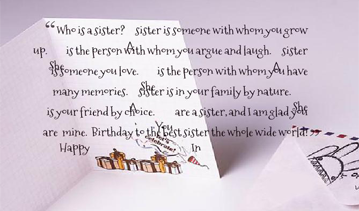 “Who is a sister? sister is someone with whom you grow
up. is the person with whom you argue and laugh. sister
A
is someone you love. is the person with whom you have
She A
many memories. sister is in your family by nature.
She
is your friend by choice. are a sister, and I am glad you
A She
are mine. Birthday to the best sister the whole wide world.”
You
Happy In